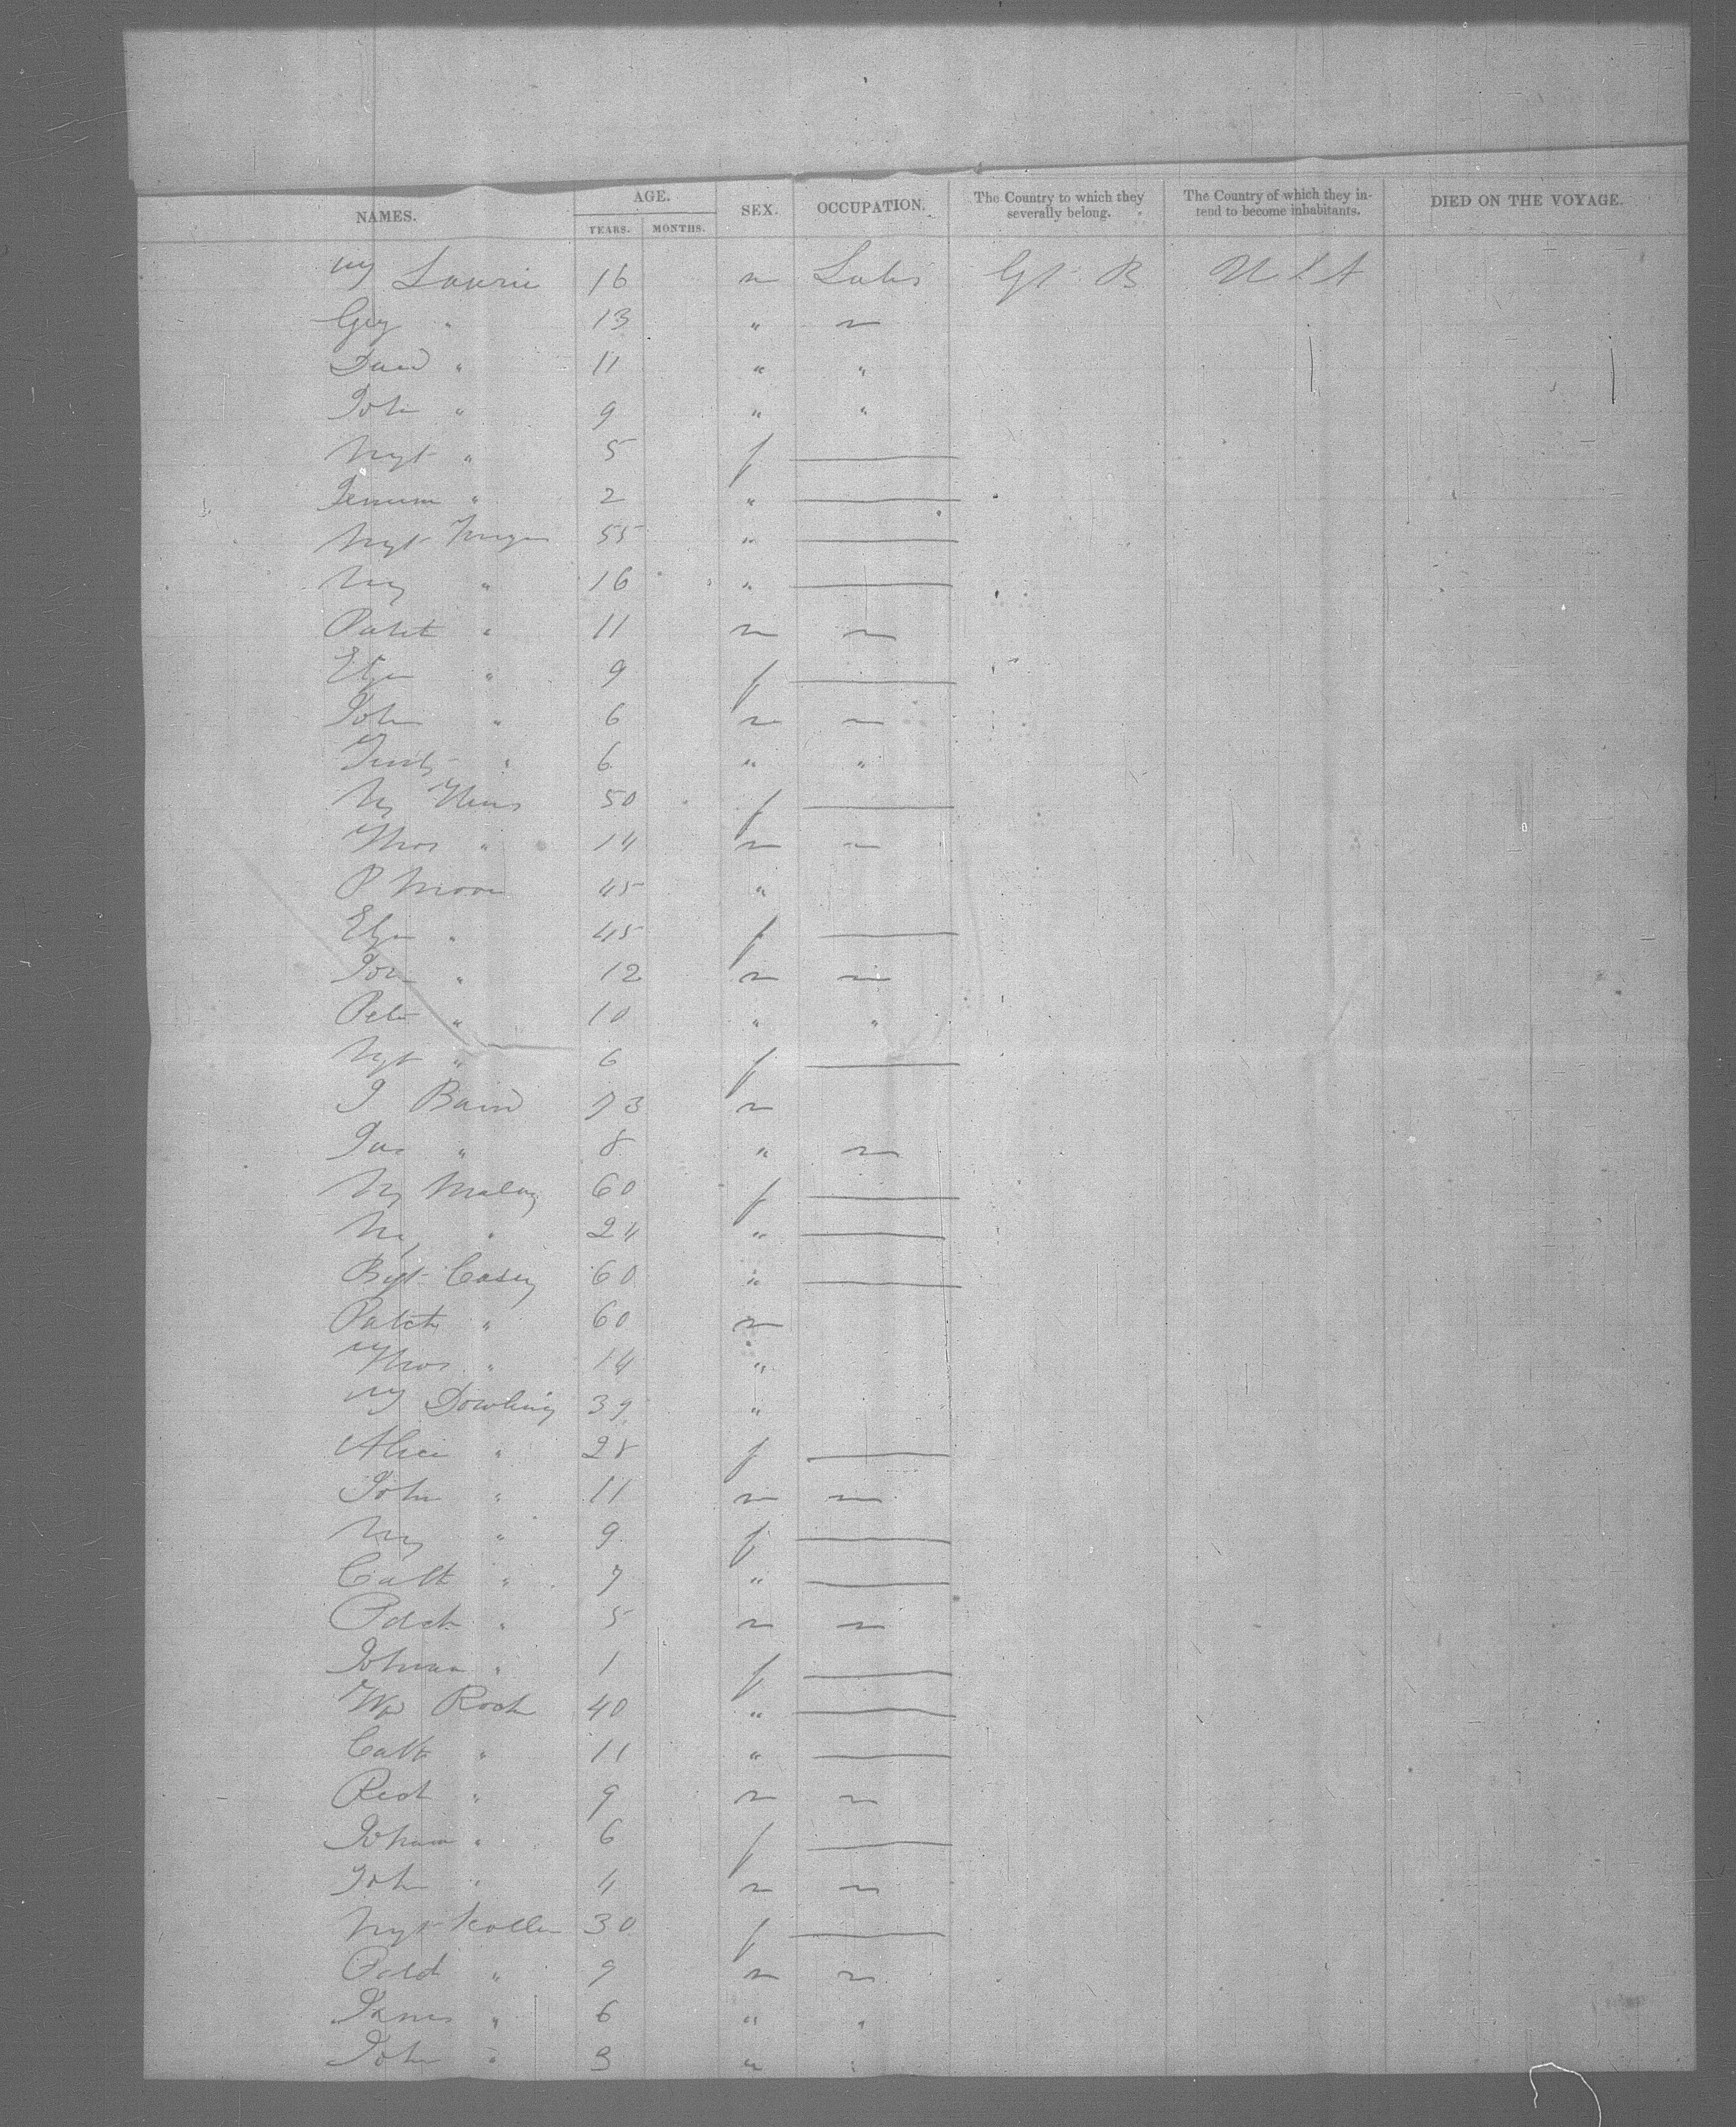 NAMES. AGE. YEARS. MONTHS. SEX. OCCUPATION. The Country to which they severally belong. The Country of which they intend to become inhabitants. DIED ON THE VOYAGE.
Wm Laurie 16 m Labr Gt B U S A
Geo " 13 " ~
David " 11 " "
John " 9 " "
Mgt " 5 f —
" 2 " —
Mgt 55 " —
My " 16 " —
Patk " 11 m ~
Eliza " 9 f —
John " 6 m ~
" 6 " "
My 50 f —
Thos " 14 m ~
P Moore 45 "
Eliza " 45 f —
" 12 m ~
Peter " 10 " "
Mgt " 6 f —
J Baird 73 m
Jas " 8 " ~
My Maloy 60 f —
My " 24 " —
Bgt Casey 60 " —
Patck " 60 m
Thos " 14 "
Wm Dowling 39 "
Alice " 28 f —
John " 11 m ~
My " 9 f —
Cath " 7 " —
Patck " 5 m ~
Johana " 1 f —
Roch 40 " —
Cath " 11 " —
Rich " 9 m ~
Johana " 6 f —
John " 4 m ~
Mgt 30 f —
" 9 m ~
James " 6 " "
John " 3 " "